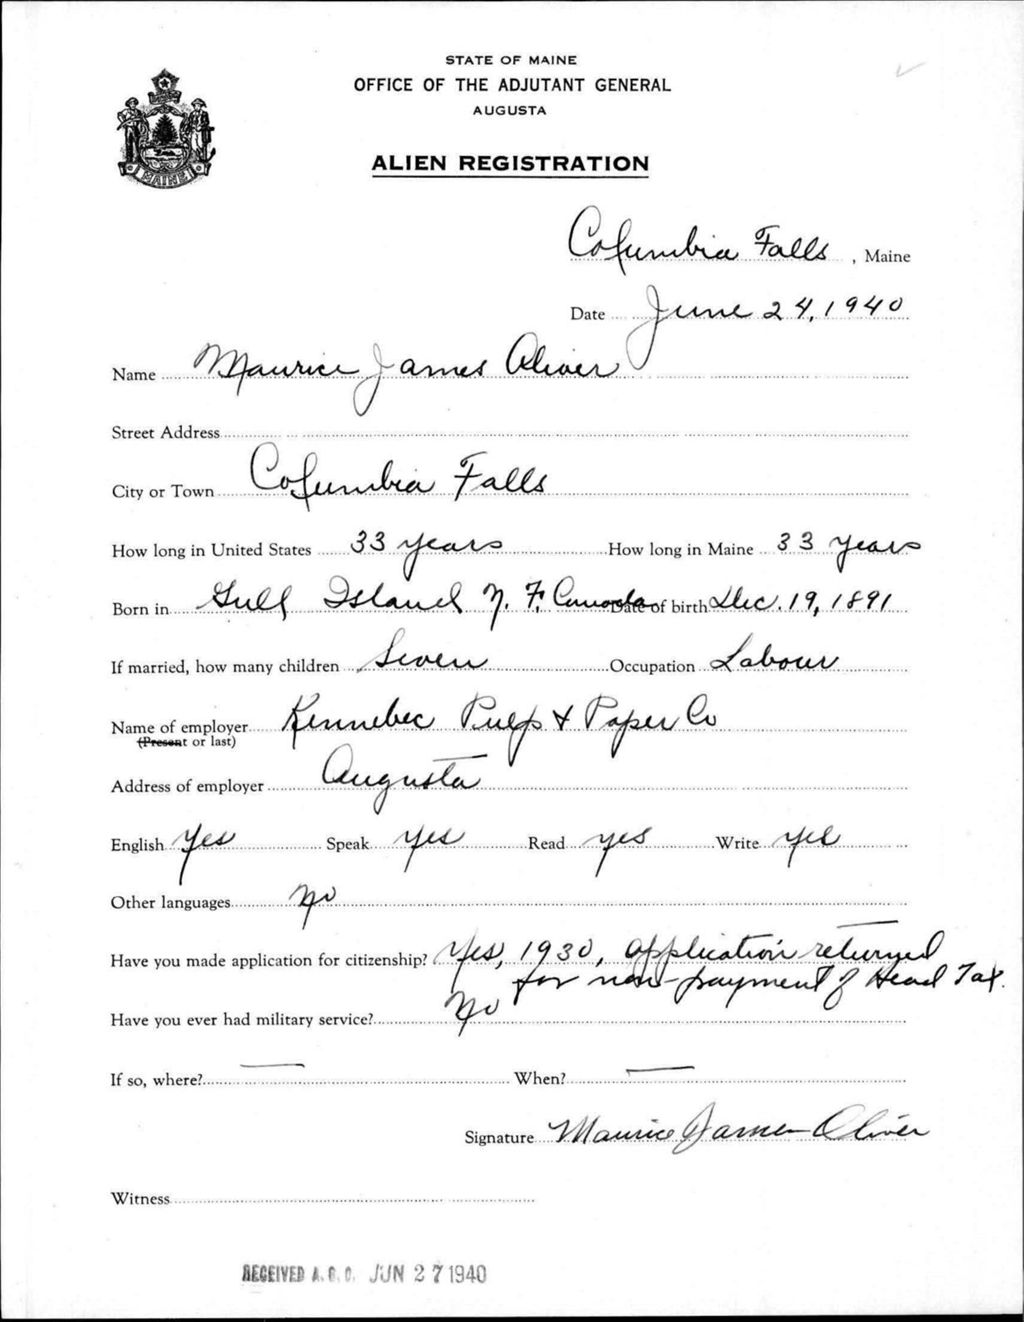 STATE OF MAINE
OFFICE OF THE ADJUTANT GENERAL
AUGUSTA
ALIEN REGISTRATION
MAINE
Columbia Falls, Maine
Date June 24, 1940
Name Maurice James Oliver
Street Address
City or Town Columbia Falls
How long in United States 33 years How long in Maine 33 years
Born in Gull Island N. F. Canada Date of birth Dec. 19, 1891
If married, how many children Seven Occupation Labour
Name of employer Kennebec Pulp & Paper Co
(Present or last)
Address of employer Augusta
English Yes Speak yes Read yes Write yes
Other languages No
Have you made application for citizenship? Yes, 1930, application returned
for non-payment of Head Tax.
Have you ever had military service? No
If so, where? — When? —
Signature Maurice James Oliver
Witness
RECEIVED A. G. O. JUN 27 1940